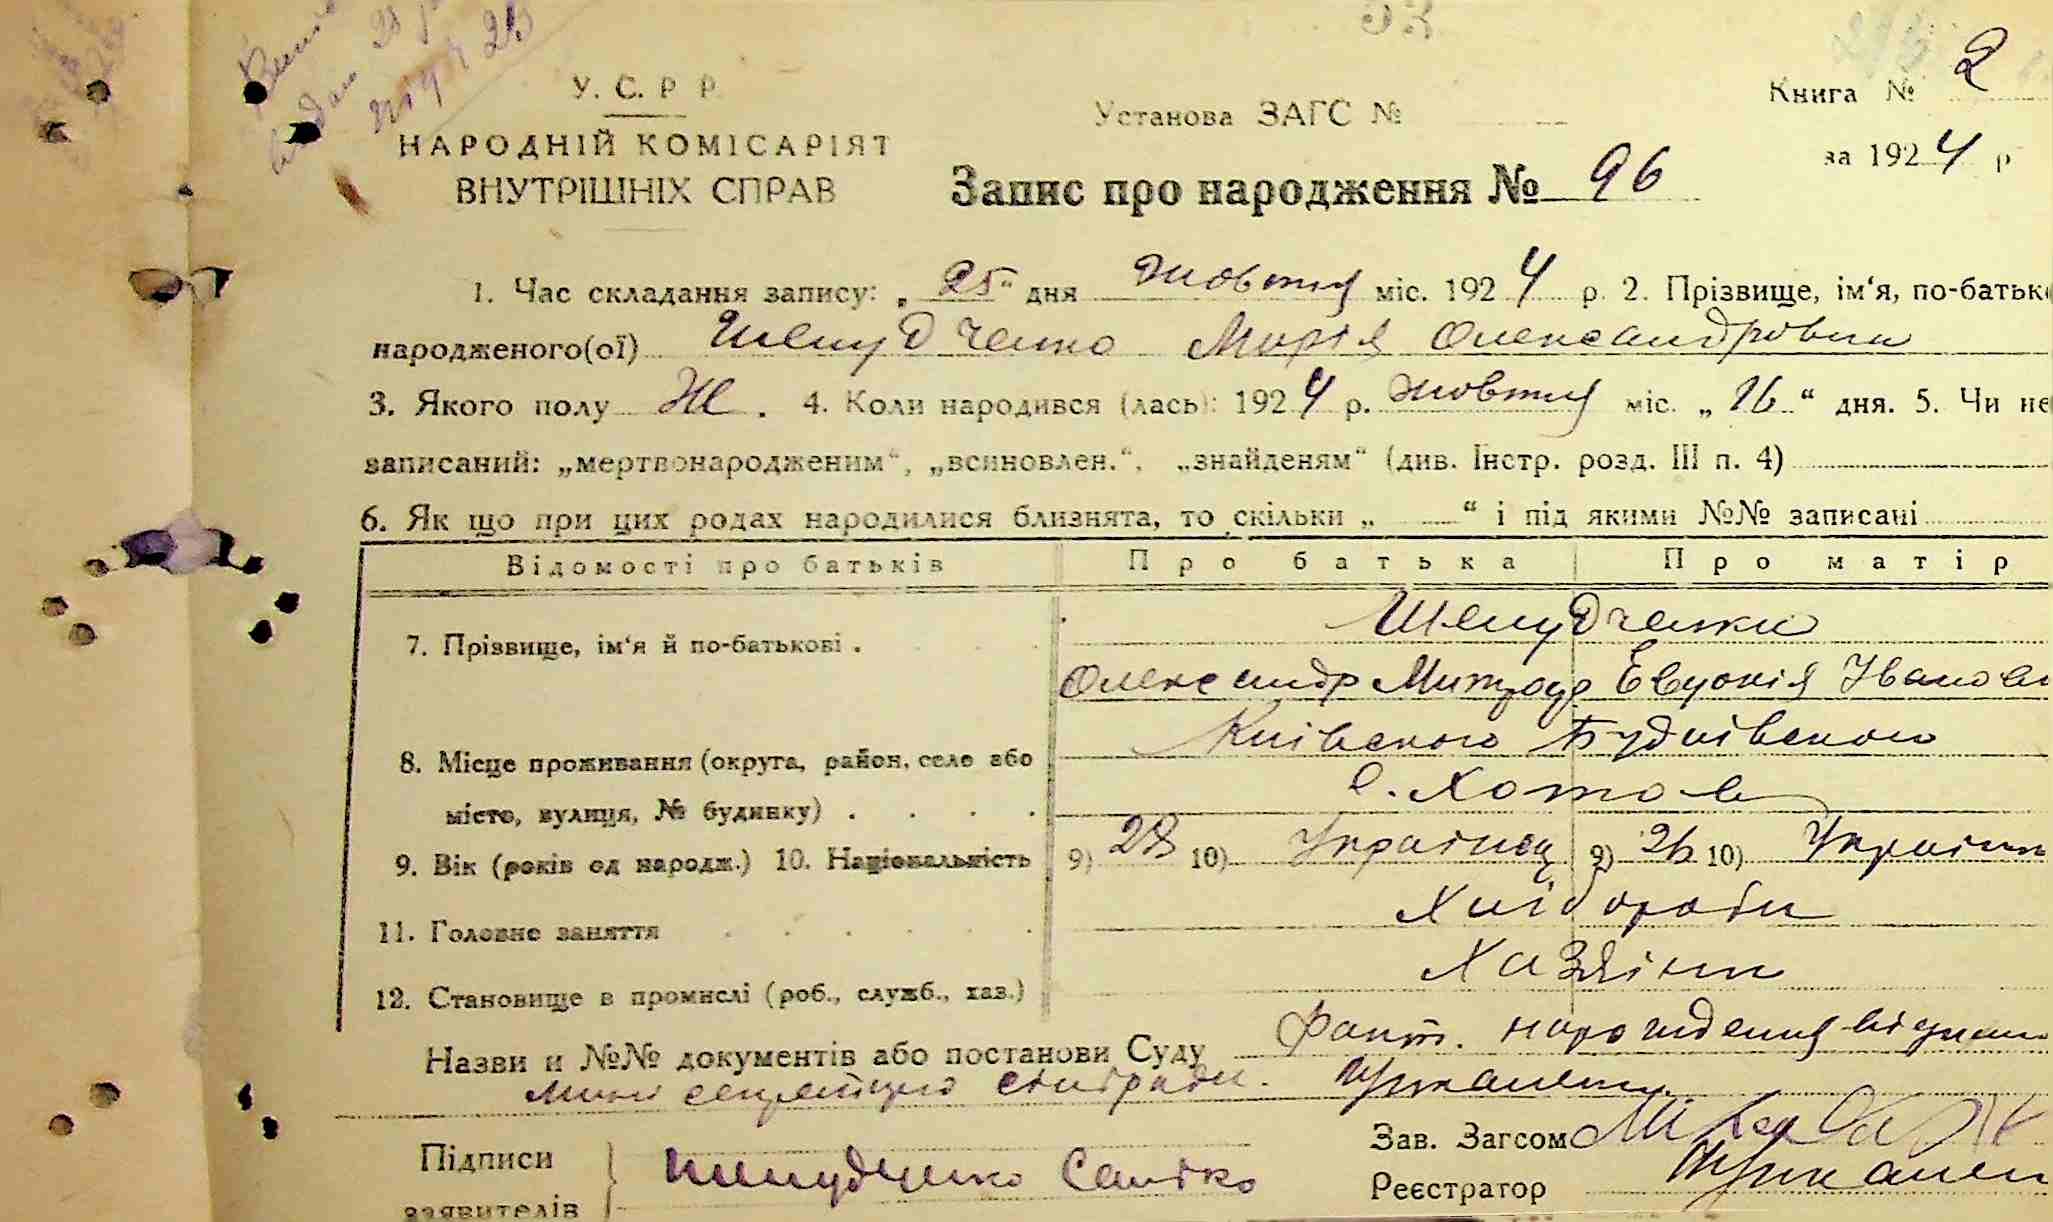 У. С. Р Р.
НАРОДНІЙ КОМІСАРІЯТ
ВНУТРІШНІХ СПРАВ
Установа ЗАГС №
Книга № 2
за 1924 р
Запис про народження № 96
1. Час складання запису: „25“ дня жовтня міс. 1924 р. 2. Прізвище, ім‘я, по-батьк
народженого(ої) Шелудченко Марія Олександровна
3. Якого полу Ж. 4. Коли народився (лась): 1924 р. жовтня міс. „16“ дня. 5. Чи не
записаний: „мертвонародженим“, „всиновлен.“, „знайденям“ (див. Інстр. розд. III п. 4)
6. Як що при цих родах народилися близнята, то скільки „ “ і під якими №№ записані
Відомості про батьків Про батька Про матір
7. Прізвище, ім‘я й по-батькові . Шелудченки
Олександр Митроф Евдокія Іванов
8. Місце проживання (округа, район, село або Київського Будаївського
місто, вулиця, № будинку) . с. Хотов
9. Вік (років од народж.) 10. Національність 9) 28 10) Українец 9) 26 10) Україн
11. Головне заняття Хлібороби
12. Становище в промислі (роб., служб., хаз.) Хазяіни
Назви и №№ документів або постанови Суду Факт. нарождения
секретарю сільради.
Підписи
заявителів Шелудченко Сашко
Зав. Загсом
Реєстратор